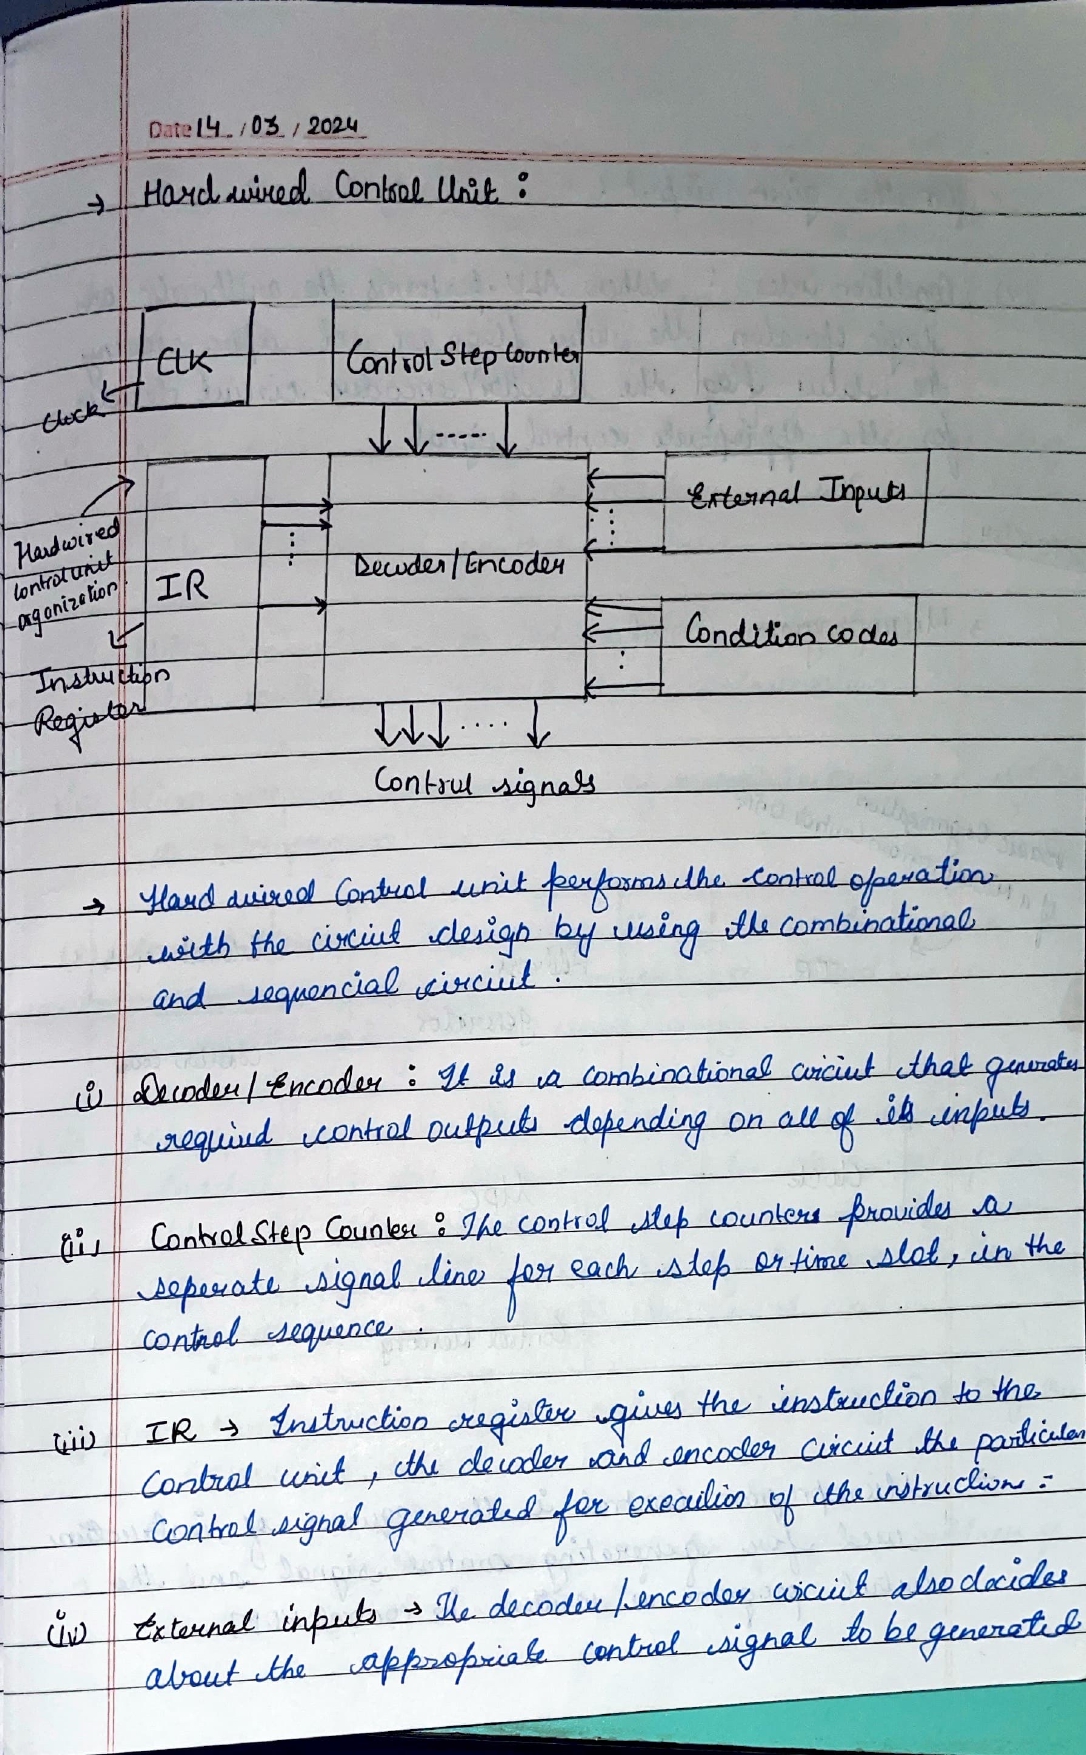 Date 14 / 03 / 2024
→ Hard wired Control Unit :
CLK
Control Step Counter
Clock
External Inputs
Hardwired
Control unit
organization
Decoder/Encoder
IR
Condition codes
Instruction
Register
Control signals
→ Hard wired Control unit performs the control operation
with the circiut design by using the combinational
and sequencial circiut.
(i) Decoder/Encoder : It is a combinational circiut that generates
required control outputs depending on all of its inputs.
(ii) Control Step Counter : The control step counters provides a
seperate signal line for each step or time slot, in the
control sequence.
(iii) IR → Instruction register gives the instruction to the
Control unit, the decoder and encoder circiut the particular
Control signal generated for execution of the instructions :-
(iv) External inputs → The decoder/encoder circiut also decides
about the appropriate control signal to be generated